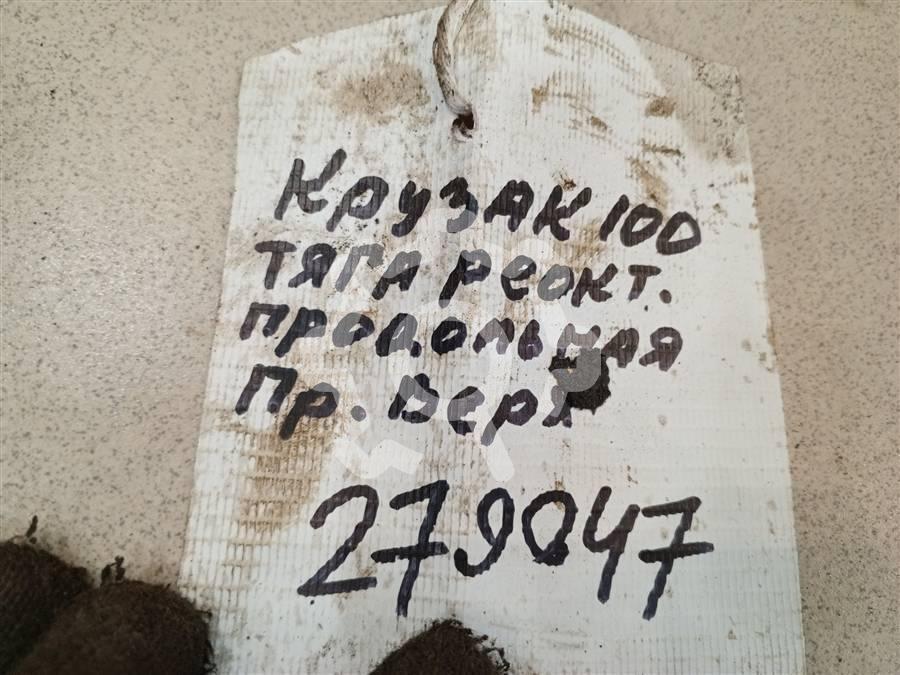 Крузак 100
тяга реакт.
продольная
Пр. верх
279047